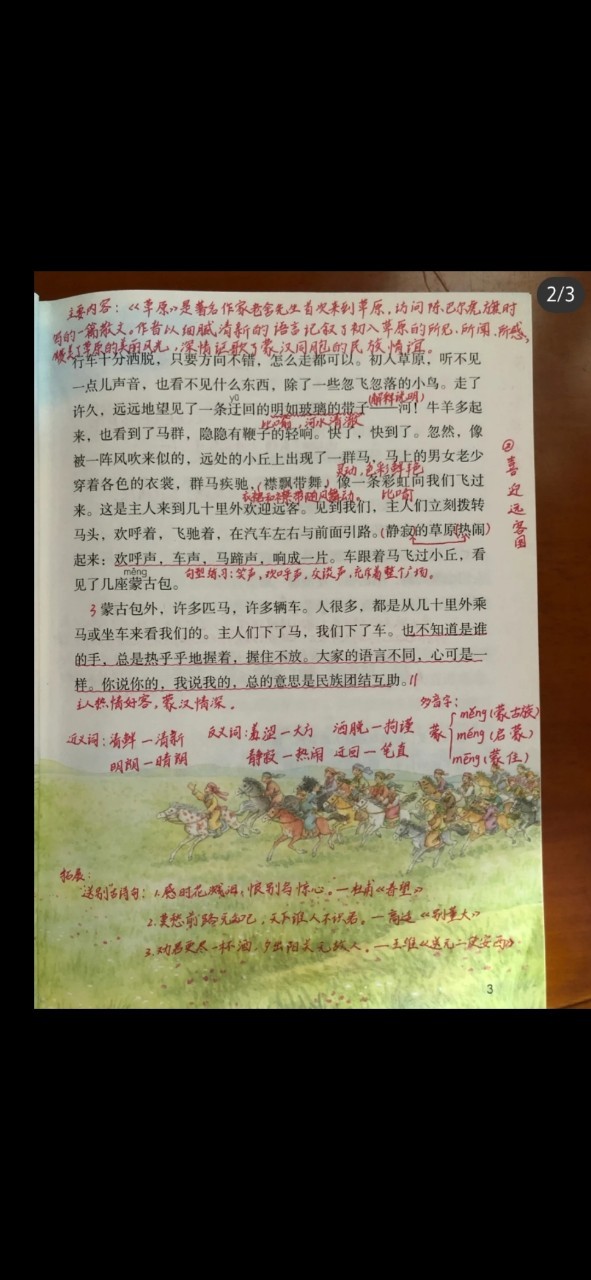 2/3
主要内容：《草原》是著名作家老舍先生首次来到草原，访问陈巴尔虎旗时
写的一篇散文。作者以细腻清新的语言记叙了初入草原的所见、所闻、所感，
赞美了草原的美丽风光，深情讴歌了蒙汉同胞的民族情谊。
行车十分洒脱，只要方向不错，怎么走都可以。初入草原，听不见
一点儿声音，也看不见什么东西，除了一些忽飞忽落的小鸟。走了
yū （解释说明）
许久，远远地望见了一条迂回的明如玻璃的带子——河！牛羊多起
比喻，河水清澈
来，也看到了马群，隐隐有鞭子的轻响。快了，快到了。忽然，像
被一阵风吹来似的，远处的小丘上出现了一群马，马上的男女老少
灵动，色彩鲜艳
穿着各色的衣裳，群马疾驰，（襟飘带舞）像一条彩虹向我们飞过
随风舞动。 比喻
来。这是主人来到几十里外欢迎远客。见到我们，主人们立刻拨转
马头，欢呼着，飞驰着，在汽车左右与前面引路。（静寂的草原热闹
起来：欢呼声，车声，马蹄声，响成一片。车跟着马飞过小丘，看
měng 句型练习：笑声，欢呼声，交谈声，充斥着整个广场。
见了几座蒙古包。
②喜迎远客图
3 蒙古包外，许多匹马，许多辆车。人很多，都是从几十里外乘
马或坐车来看我们的。主人们下了马，我们下了车。也不知道是谁
的手，总是热乎乎地握着，握住不放。大家的语言不同，心可是一
样。你说你的，我说我的，总的意思是民族团结互助。//
主人热情好客，蒙汉情深。
多音字：
蒙 měng（蒙古族）
méng（启蒙）
mēng（蒙住）
近义词：清鲜—清新 反义词：羞涩—大方 洒脱—拘谨
明朗—晴朗 静寂—热闹 迂回—笔直
拓展：
送别古诗句：1.感时花溅泪，恨别鸟惊心。—杜甫《春望》
2.莫愁前路无知己，天下谁人不识君。—高适《别董大》
3.劝君更尽一杯酒，西出阳关无故人。—王维《送元二使安西》
3